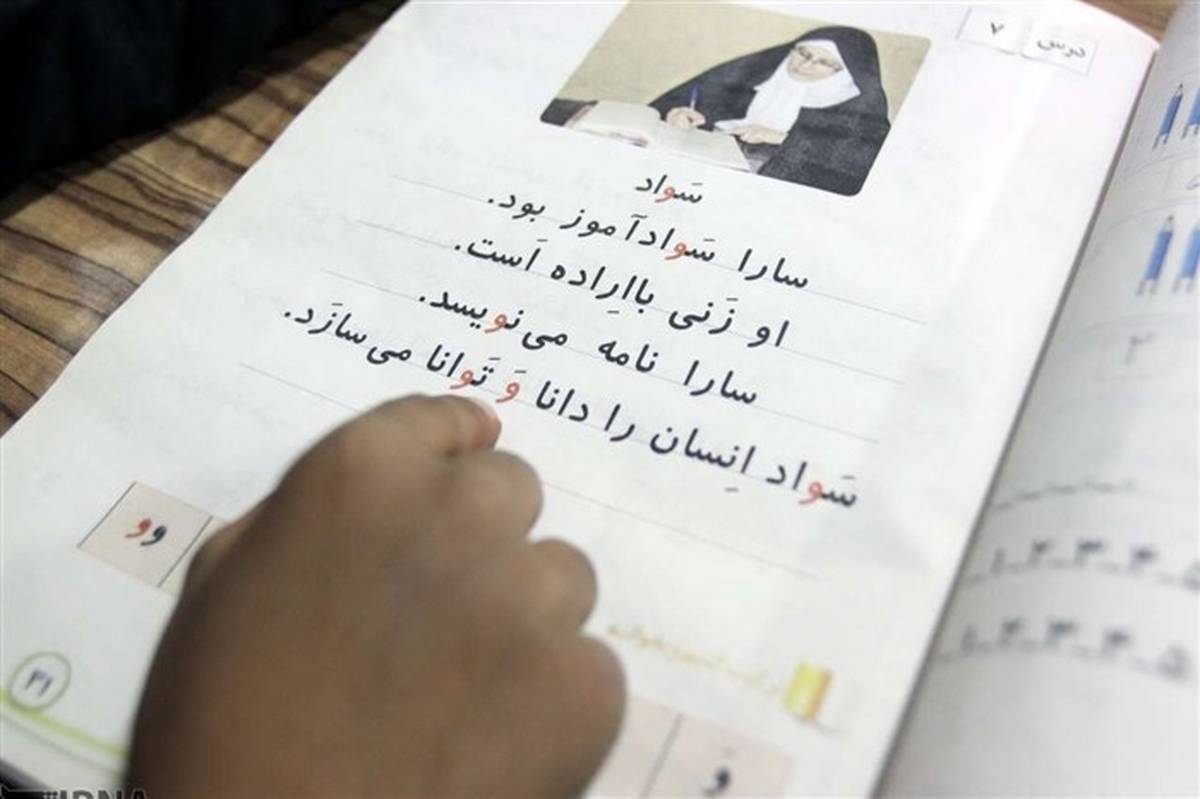 درس ۷
سَواد
سارا سَوادآموز بود.
او زَنی بااِراده اَست.
سارا نامه می‌نویسد.
سَواد اِنسان را دانا وَ تَوانا می‌سازَد.
و و
وَ
۳۱
۲
۱ ۲ ۳ ۴ ۵
۱ ۲ ۳ ۴ ۵
IRNA